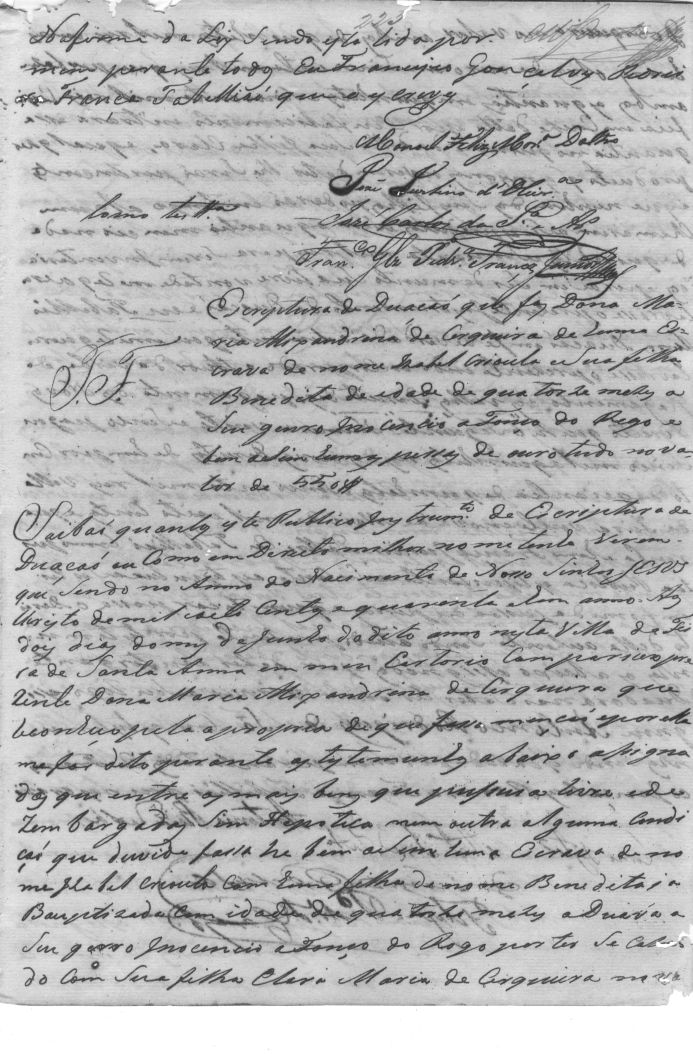 223
Na forma da Ley sendo esta lida por
mim perante todos Eu Francisco Gonçalvez Pedri
França Tabelliaõ que o escrevy
Manoel Felis Mor.ª Daltro
João d'Oliv.ª
Como testª
José Carlos da S.ª
Fran.co Glz Pedr.ª França
Escriptura de Duacaõ que faz Dona Ma-
ria Alixandrina de Cerqueira de huma Es-
crava de nome Izabel Crioula e Sua filha
Benedita de idade de quatorze mezes a
Seu genro Inocencio Afonço do Rego e
bem acim humas pessas de ouro tudo no va-
lor de 550$
F. F.
Saibaõ quantos este Publico Instrum.to de Escriptura de
Duacaõ ou Como em Direito milhor nome tenha virem
que Sendo no Anno do Nacimento de Nosso Senhor JESUS
Christo de mil oito Centos e quarenta e hum anno. Aos
dois dias do mes de Junho do dito anno nesta Villa da Fei
ra de Santa Anna em meu Cartorio Compariceo pre
zente Dona Maria Alixandrina de Cerqueira que
reconheço pela a propria de que fasso mençaõ e por ella
me foi dito perante as testemunhas abaixo asigna
das que entre os mais bens que pussuia livre e de
zembargados Sem Hipoteca nem outra alguma Condi
çaõ que duvida fassa he bem acim huma Escrava de no
me Izabel Crioula Com huma filha de nome Benedita ja
Bauptizada Com idade de quatorze mezes a Duava a
Seu genro Inocencio Afonço do Rego por ter Se Caza
do Com Sua filha Clara Maria de Cerqueira na